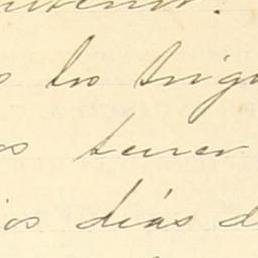 s los trigo
os tener
ios días d